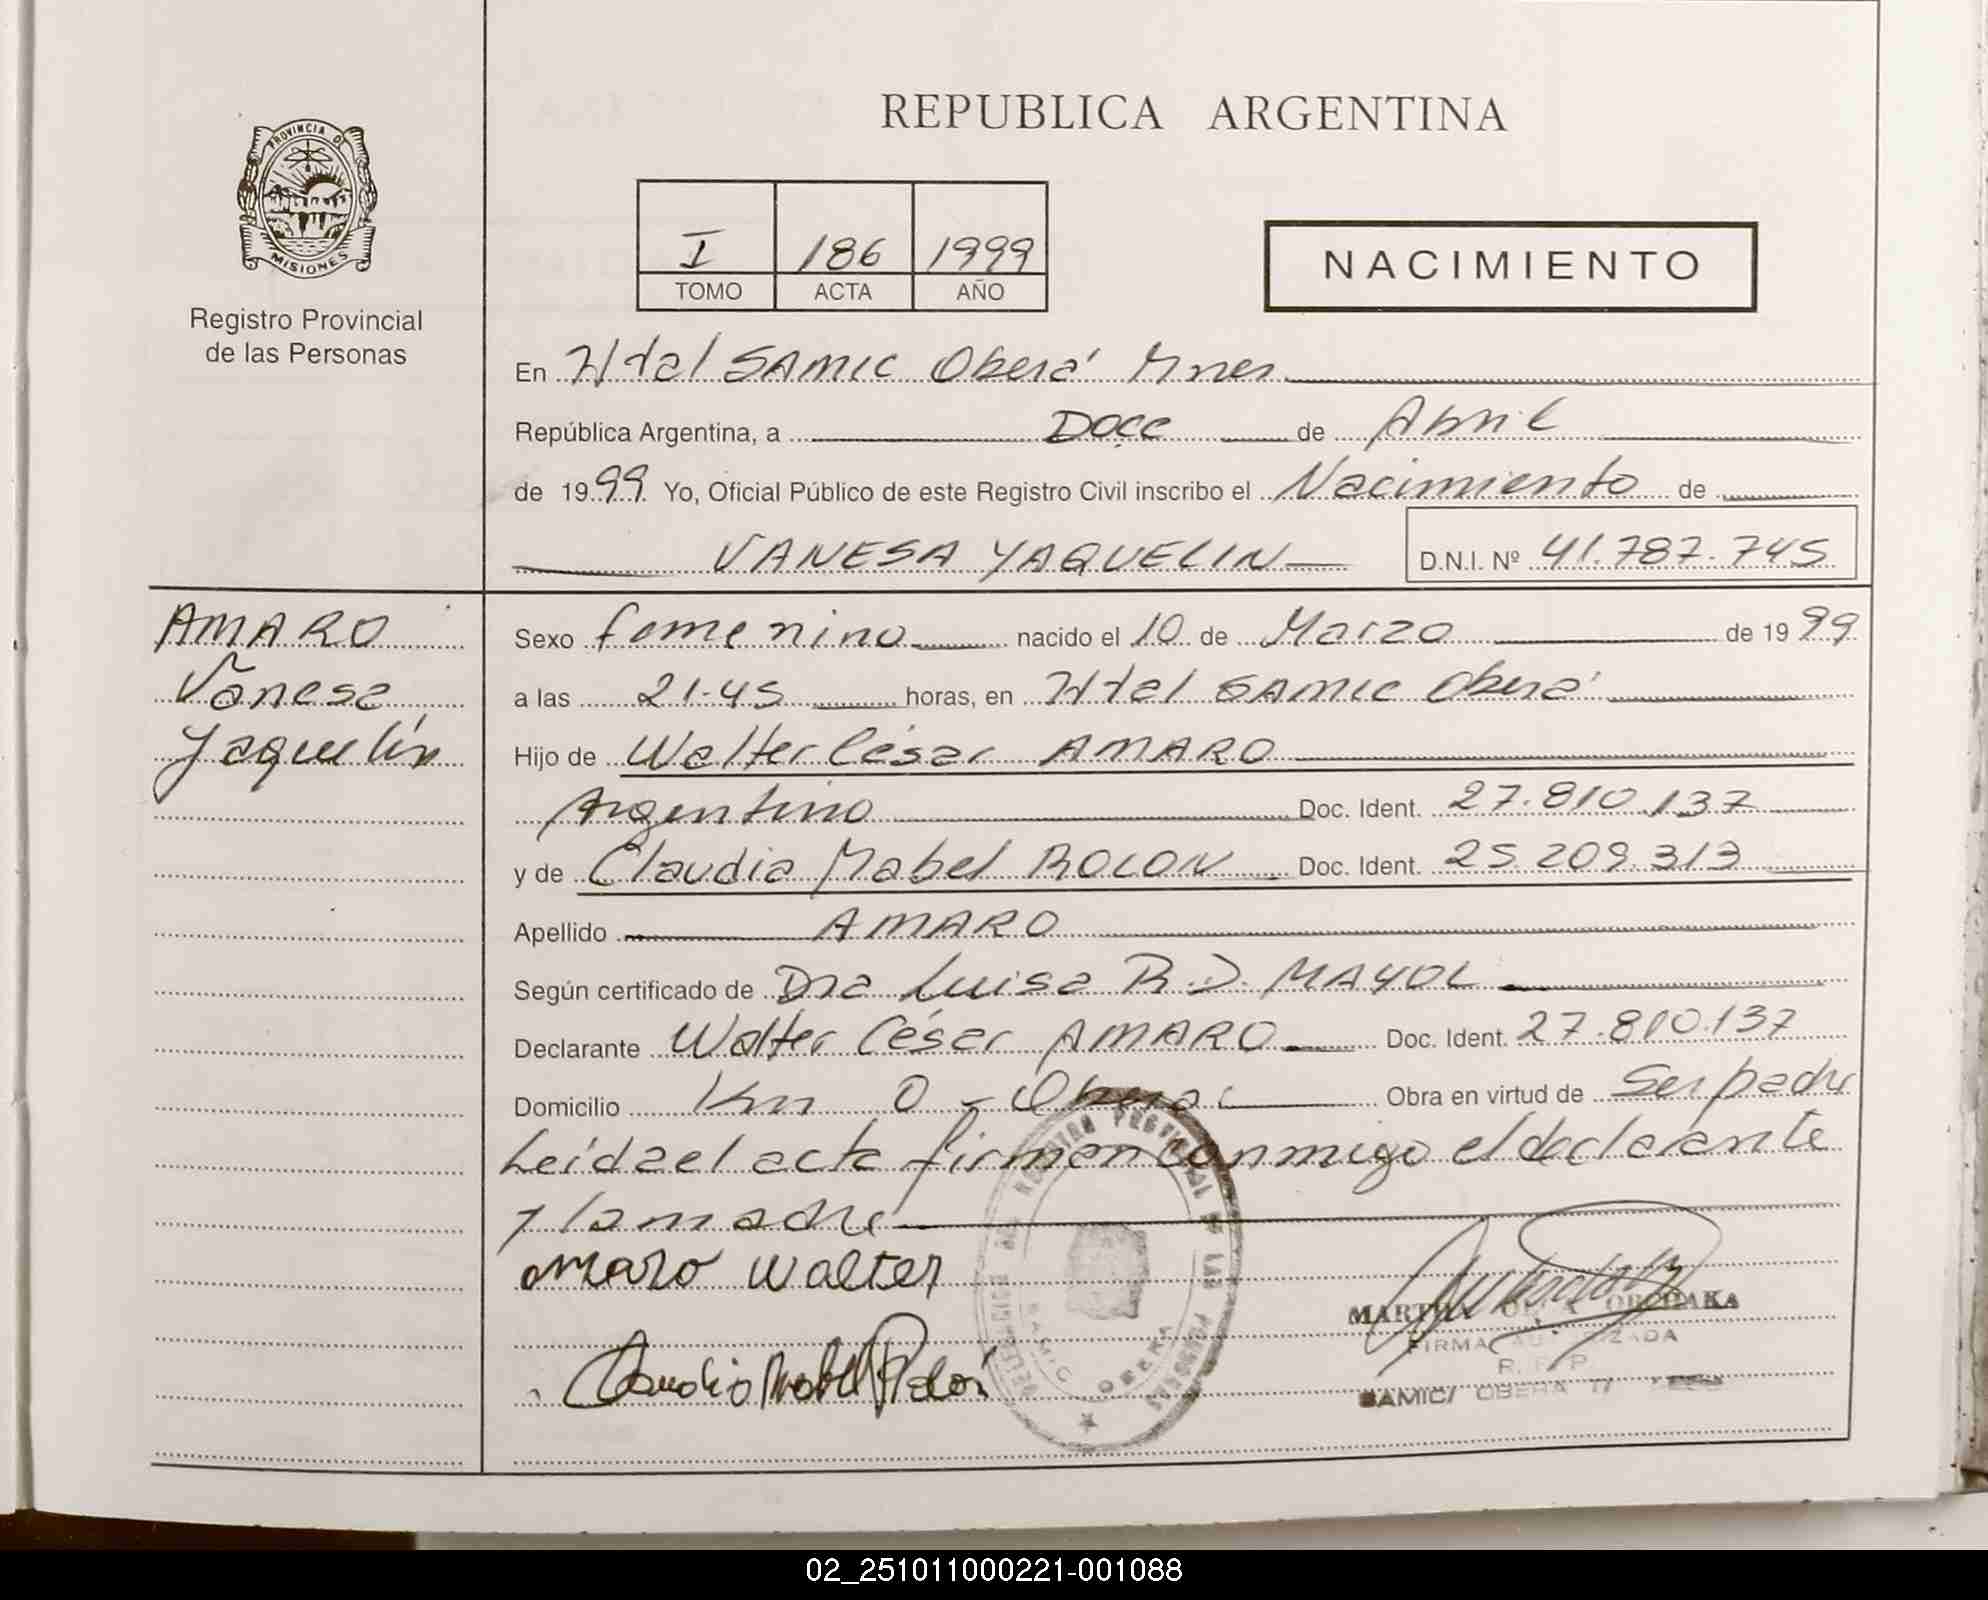 REPUBLICA ARGENTINA
PROVINCIA D
MISIONES
Registro Provincial
de las Personas
I 186 1999
TOMO ACTA AÑO
NACIMIENTO
En Htal SAMIC Oberá Mnes
República Argentina, a Doce de Abril
de 1999 Yo, Oficial Público de este Registro Civil inscribo el Nacimiento de
VANESA YAQUELIN D.N.I. Nº 41.787.745
AMARO
Vanesa
Yaquelín
Sexo femenino nacido el 10 de Marzo de 1999
a las 21.45 horas, en Htal SAMIC Oberá
Hijo de Walter César AMARO
Argentino Doc. Ident. 27.810.137
y de Claudia Mabel ROLON Doc. Ident. 25.209.313
Apellido AMARO
Según certificado de Dra Luisa R.D. MAYOL
Declarante Walter César AMARO Doc. Ident. 27.810.137
Domicilio Km 0 - Oberá Obra en virtud de Ser padre
Leida el acta firman conmigo el declarante
y la madre
Amaro Walter
Claudia Mabel Rolón
DELEGACION REGISTRO PROVINCIAL DE LAS PERSONAS
SAMIC OBERA
MARTHA
FIRMA AUTORIZADA
R. P. P.
SAMIC/ OBERA
02_251011000221-001088